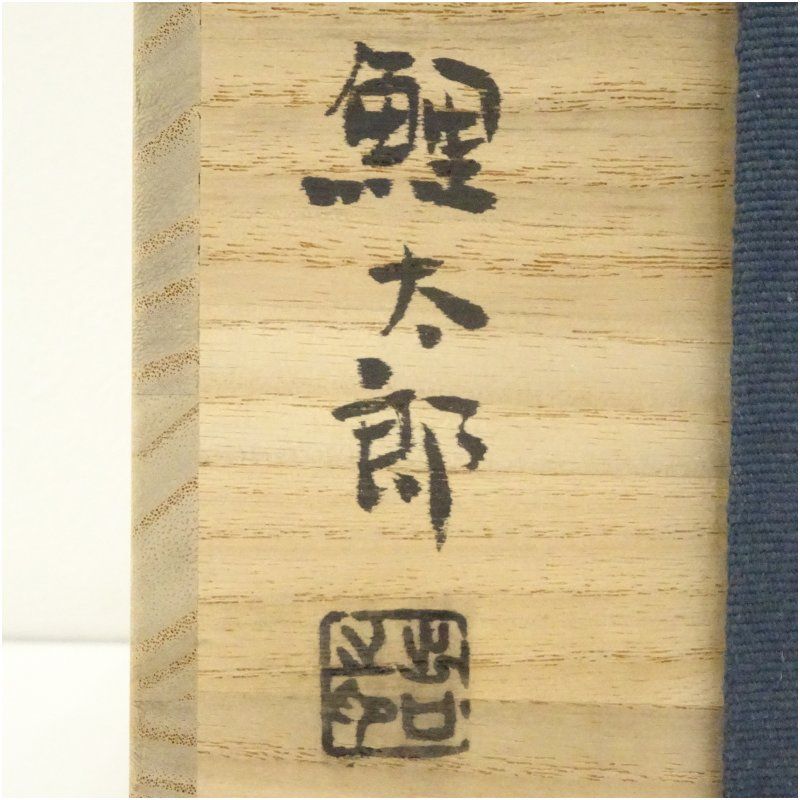 鯉太郎